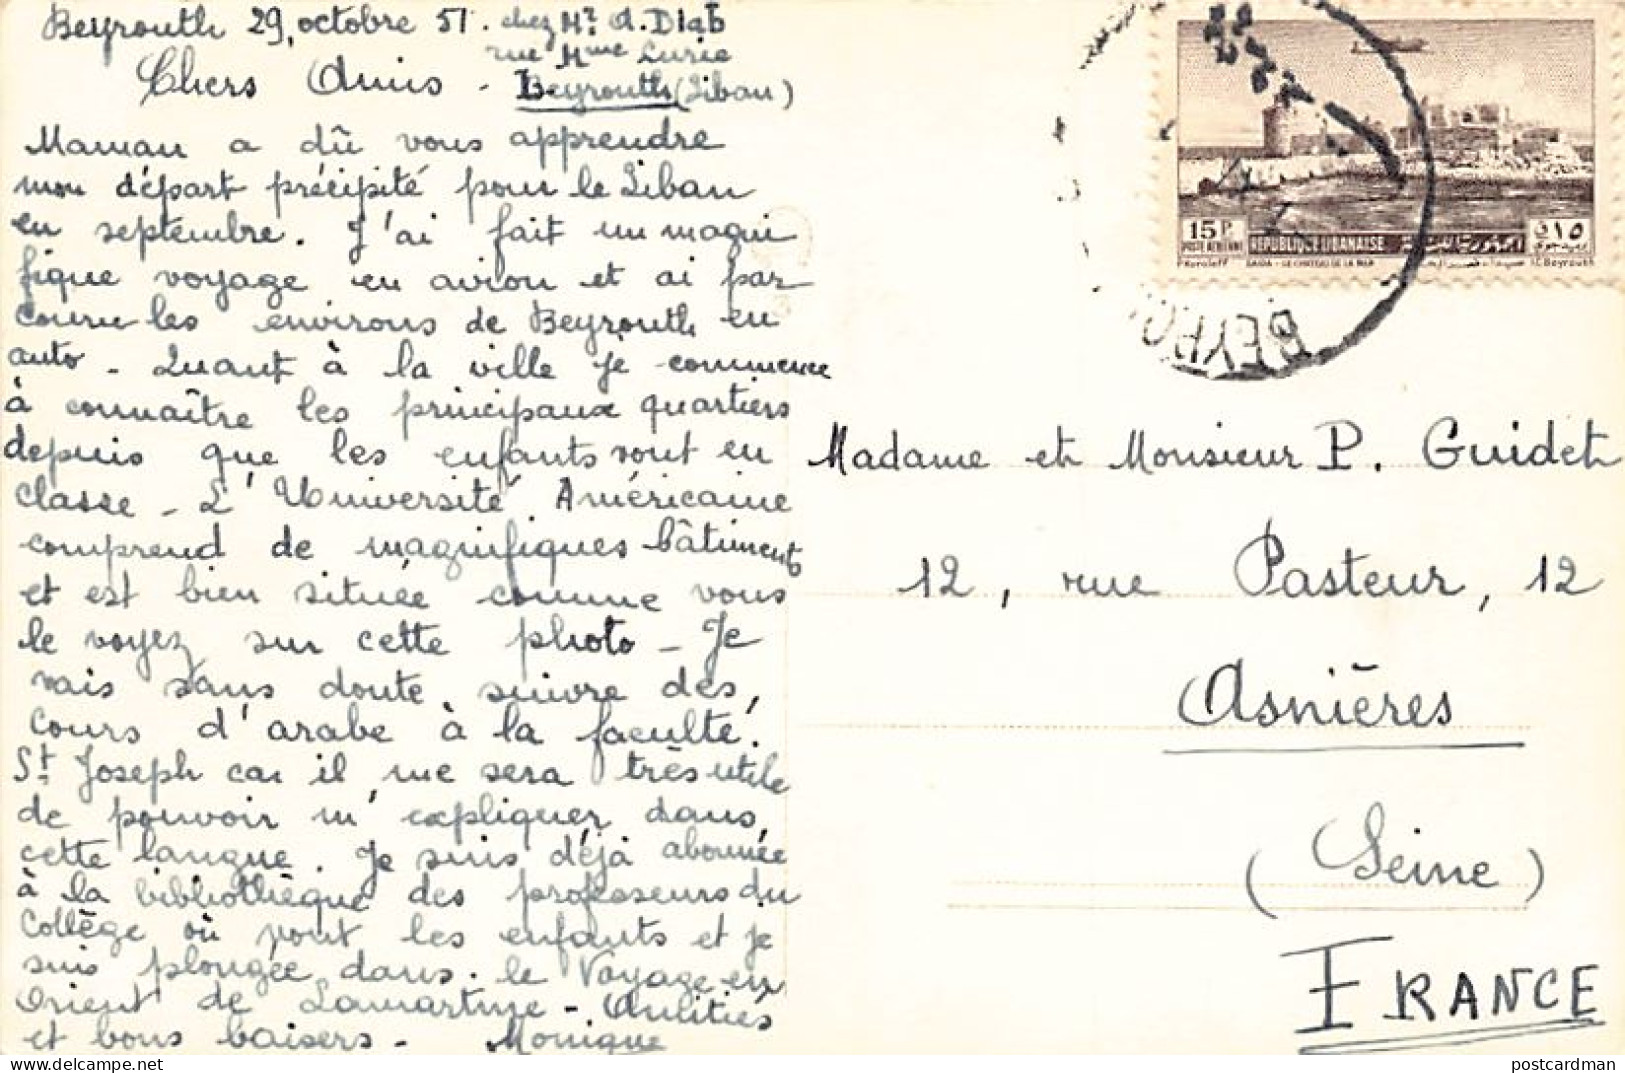 Beyrouth 29, octobre 51. chez Mr. A. Diab
rue Mme Curie
Chers Amis - Beyrouth (Liban)
Maman a dû vous apprendre
mon départ précipité pour le Liban
en septembre. J'ai fait un magni
fique voyage en avion et ai par
couru les environs de Beyrouth en
auto - Quant à la ville je commence
à connaître les principaux quartiers
depuis que les enfants vont en
classe - L'Université Américaine
comprend de magnifiques bâtiments
et est bien située comme vous
le voyez sur cette photo - Je
vais sans doute suivre des
cours d'arabe à la faculté
St Joseph car il me sera très utile
de pouvoir m'expliquer dans
cette langue. Je suis déjà abonnée
à la bibliothèque des professeurs du
Collège où vont les enfants et je
suis plongée dans le Voyage en
Orient de Lamartine - Amitiés
et bons baisers - Monique
15 P.
POSTE AERIENNE
REPUBLIQUE LIBANAISE
١٥
P. Koroleff SAIDA - LE CHATEAU DE LA MER I.C. Beyrouth
BEYRO
Madame et Monsieur P. Guidet
12, rue Pasteur, 12
Asnières
(Seine)
FRANCE
postcardman